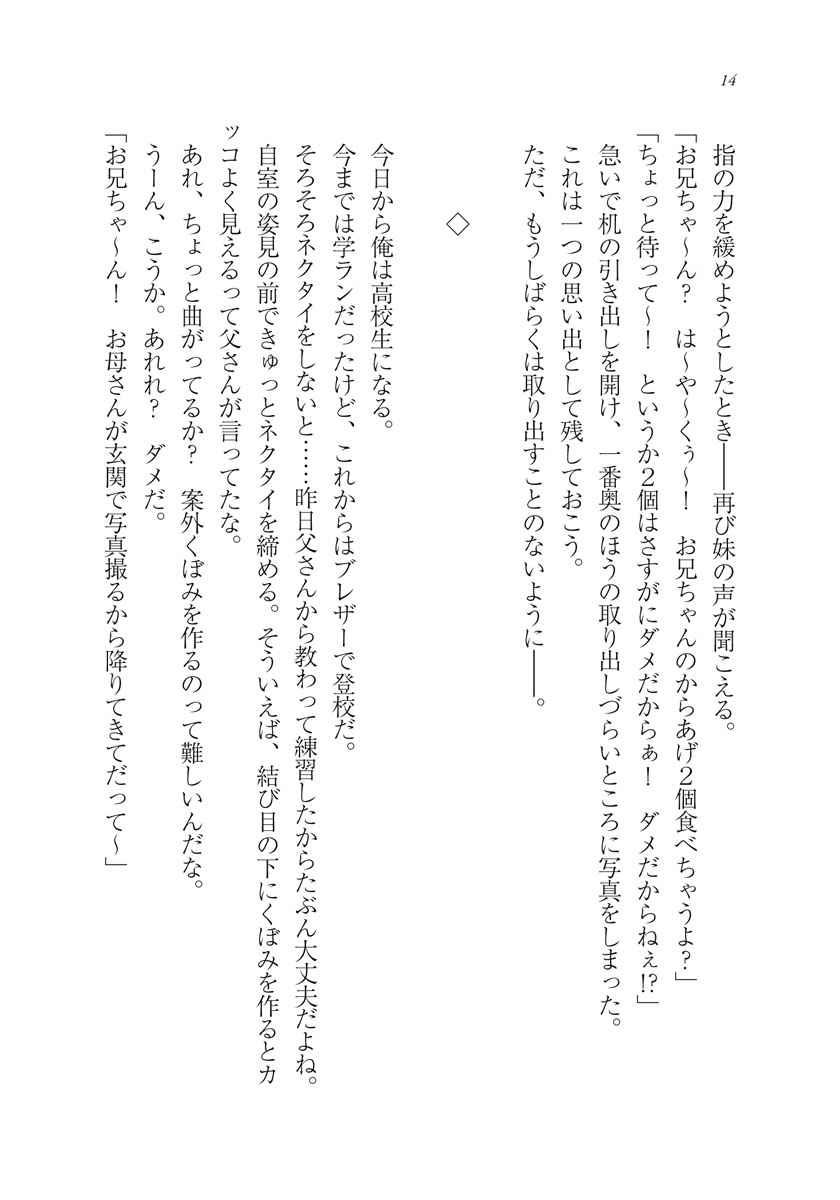 14
指の力を緩めようとしたとき――再び妹の声が聞こえる。
「お兄ちゃ～ん？　は～や～くぅ～！　お兄ちゃんのからあげ２個食べちゃうよ？」
「ちょっと待って～！　というか２個はさすがにダメだからぁ！　ダメだからねぇ!?」
急いで机の引き出しを開け、一番奥のほうの取り出しづらいところに写真をしまった。
これは一つの思い出として残しておこう。
ただ、もうしばらくは取り出すことのないように――。
◇
今日から俺は高校生になる。
今までは学ランだったけど、これからはブレザーで登校だ。
そろそろネクタイをしないと……昨日父さんから教わって練習したからたぶん大丈夫だよね。
自室の姿見の前できゅっとネクタイを締める。そういえば、結び目の下にくぼみを作るとカ
ッコよく見えるって父さんが言ってたな。
あれ、ちょっと曲がってるか？　案外くぼみを作るのって難しいんだな。
うーん、こうか。あれれ？　ダメだ。
「お兄ちゃ～ん！　お母さんが玄関で写真撮るから降りてきてだって～」